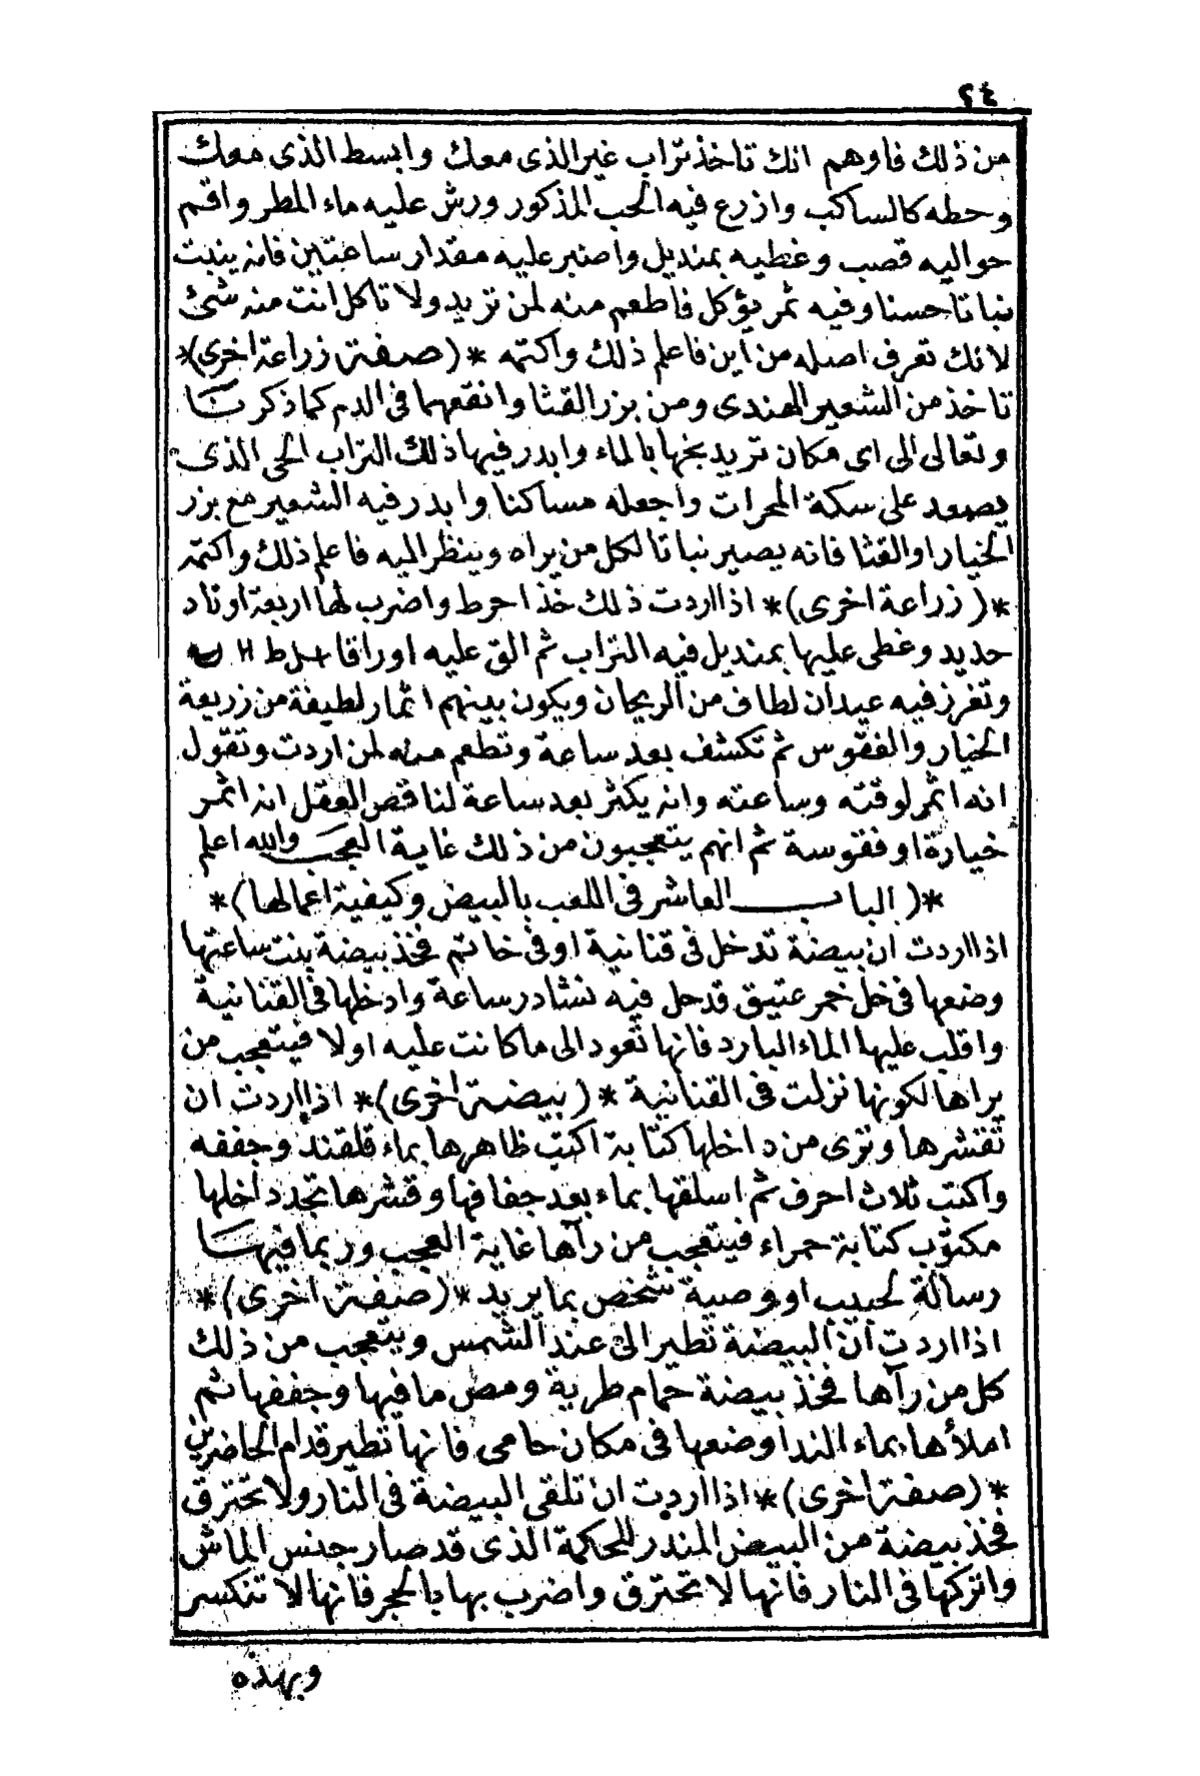 ٢٤
من ذلك فاوهم انك تاخذ تراب غير الذى معك وابسط الذى معك
وحطه كالساكب وازرع فيه الحب المذكور ورش عليه ماء المطر واقم
حواليه قصب وغطيه بمنديل واصبر عليه مقدار ساعتين فانه ينبت
نباتا حسنا وفيه ثمر يؤكل فاطعم منه لمن تريد ولا تاكل انت منه شئ
لانك تعرف اصله من اين فاعلم ذلك واكتمه *(صفة زراعة اخرى)*
تاخذ من الشعير الهندى ومن بزر القثا وانقعهما فى الدم كما ذكرنا
وتعالى الى اى مكان تريد بخها بالماء وابدر فيها ذلك التراب الحى الذى
يصعد على سكة المحرات واجعله مساكنا وابدر فيه الشعير مع بزر
الخيار او القثا فانه يصير نباتا لكل من يراه وينظر اليه فاعلم ذلك واكتمه
*(زراعة اخرى)* اذا اردت ذلك خذ احوط واضرب لها اربعة اوتاد
حديد وغطى عليها بمنديل فيه التراب ثم الق عليه اوراقا
وتغرز فيه عيدان لطاف من الريحان ويكون بينهم اثمار لطيفة من زريعة
الخيار والفقوس ثم تكشف بعد ساعة وتطعم منه لمن اردت وتقول
انه اثمر لوقته وساعته وانه يكثر بعد ساعة لناقص العقل انه اثمر
خيارة او فقوسة ثم انهم يتعجبون من ذلك غاية العجب والله اعلم
*(الباب العاشر فى اللعب بالبيض وكيفية اعمالها)*
اذا اردت ان بيضة تدخل فى قنانية او فى خاتم فخذ بيضة بنت ساعتها
وضعها فى خل خمر عتيق قد حل فيه نشادر ساعة وادخلها فى القنانية
واقلب عليها الماء البارد فانها تعود الى ما كانت عليه اولا فيتعجب من
يراها لكونها نزلت فى القنانية *(بيضة اخرى)* اذا اردت ان
تقشرها وترى من داخلها كتابة اكتب ظاهرها بماء قلقند وجففه
واكتب ثلاث احرف ثم اسلقها بماء بعد جفافها وقشرها تجدد اخلها
مكتوب كتابة حمراء فيتعجب من رآها غاية العجب وربما فيها
رسالة لحبيب او وصية شخص بما يريد *(صفة اخرى)*
اذا اردت ان البيضة تطير الى عند الشمس ويتعجب من ذلك
كل من رآها فخذ بيضة حمام طرية ومص ما فيها وجففها ثم
املأها بماء الندا وضعها فى مكان حامى فانها تطير قدام الحاضرين
*(صفة اخرى)* اذا اردت ان تلقى البيضة فى النار ولا تحترق
فخذ بيضة من البيض المندر للحكمة الذى قد صار جنس الماش
واتركها فى النار فانها لا تحترق واضرب بها بالحجر فانها لا تنكسر
وبهذه